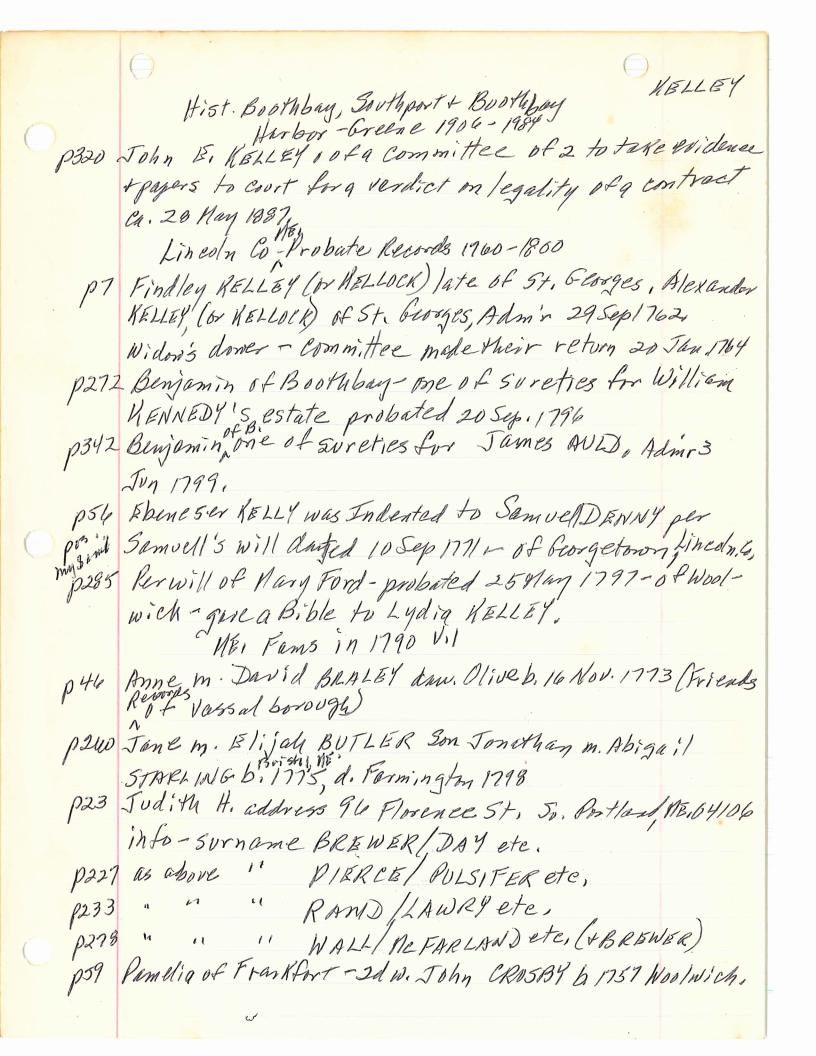 KELLEY
Hist. Boothbay, Southport + Boothbay
Harbor - Greene 1906 - 1984
p320 John E. KELLEY, of a committee of 2 to take evidence
+ papers to court for a verdict on legality of a contract
ca. 28 May 1887.
Lincoln Co ME. - Probate Records 1760-1800
p7 Findley KELLEY (or KELLOCK) late of St. Georges, Alexander
KELLEY, (or KELLOCK) of St. Georges, Adm'r 29 Sep 1762.
Widow's dower - committee made their return 20 Jan. 1764
p272 Benjamin of Boothbay - one of sureties for William
KENNEDY'S estate probated 20 Sep. 1796
p342 Benjamin of B. one of sureties for James AULD, Admr 3
Jun 1799.
p56 Ebeneser KELLY was Indented to Samuell DENNY per
pos. my Saml Samuell's will dated 10 Sep 1771 - of Georgetown, Lincoln Co,
p285 Per will of Mary Ford - probated 25 May 1797 - of Wool-
wich - gave a Bible to Lydia KELLEY.
ME. Fams in 1790 VII
p46 Anne m. David BRALEY dau. Olive b. 16 Nov. 1773 (Friends
Records of Vassalborough)
p260 Jane m. Elijah BUTLER Son Jonathan m. Abigail
STARLING b. Bristol, ME. 1775, d. Farmington 1798
p23 Judith H. address 96 Florence St, So. Portland, ME. 04106
info - surname BREWER/DAY etc.
p227 as above " PIERCE/ PULSIFER etc,
p233 " " " RAND/LAWRY etc,
p278 " " " WALL/McFARLAND etc, (+ BREWER)
p59 Pamelia of Frankfort - 2d w. John CROSBY b. 1757 Woolwich.